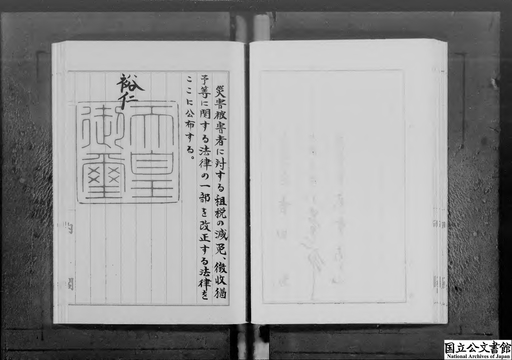 災害被害者に対する租税の減免、徴收猶
予等に関する法律の一部を改正する法律を
ここに公布する。
裕仁
天皇
御璽
国立公文書館
National Archives of Japan